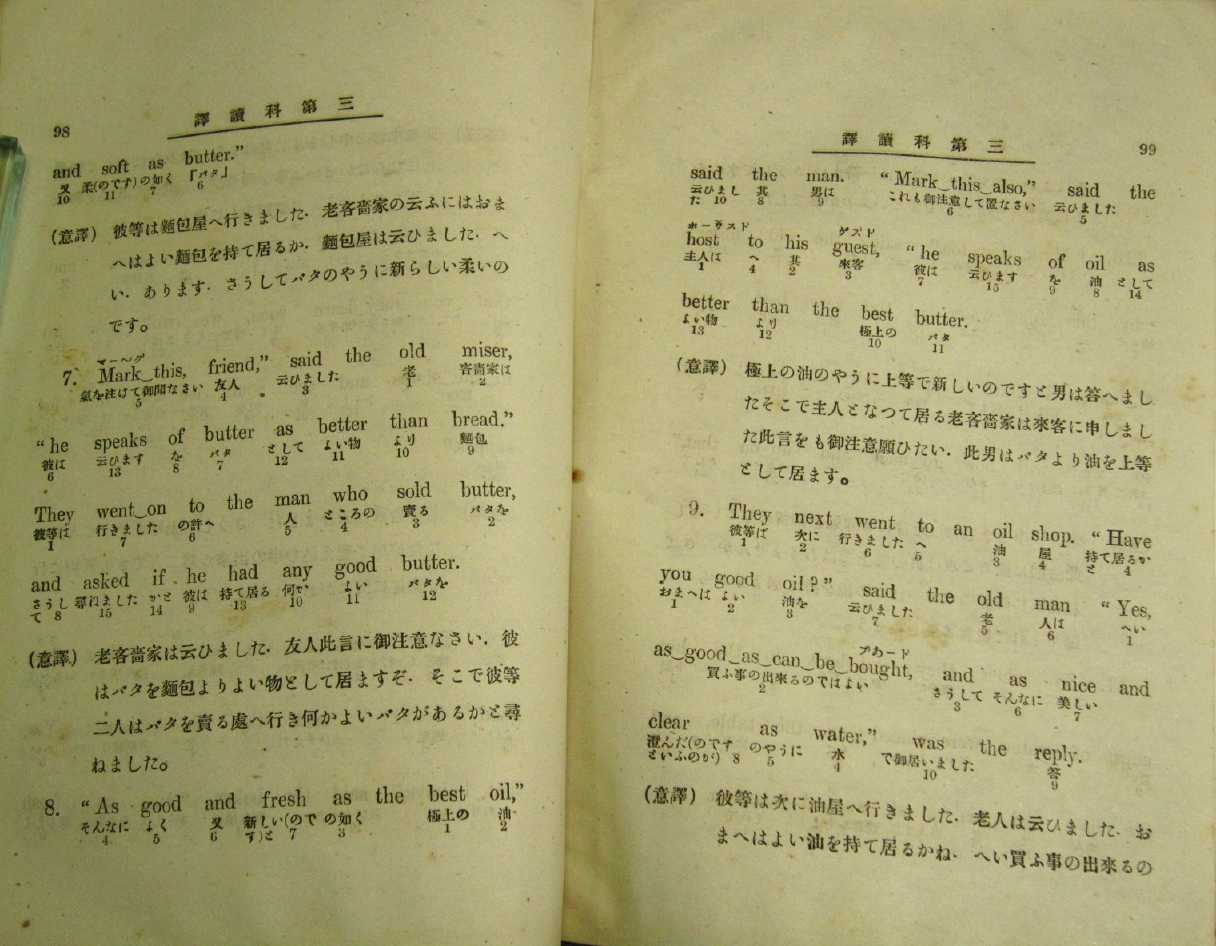 98
譯讀科第三
and soft as butter.”
又 柔(のです)の如く 「バタ」
10 11 7 6
(意譯) 彼等は麵包屋へ行きました．老吝嗇家の云ふにはおま
へはよい麵包を持て居るか．麵包屋は云ひました．へ
い．あります．さうしてバタのやうに新らしい柔いの
です。
マーク
7. Mark this, friend,” said the old miser,
氣を注けて御聞なさい 友人 云ひました 老 吝嗇家は
5 4 3 1 2
“he speaks of butter as better than bread.”
彼は 云ひます を バタ として よい物 より 麵包
6 13 8 7 12 11 10 9
They went on to the man who sold butter,
彼等は 行きました の許へ 人 ところの 賣る バタを
1 7 6 5 4 3 2
and asked if he had any good butter.
さうして 尋ねました かと 彼は 持て居る 何か よい バタを
8 15 14 9 13 10 11 12
(意譯) 老吝嗇家は云ひました．友人此言に御注意なさい．彼
はバタを麵包よりよい物として居ますぞ．そこで彼等
二人はバタを賣る處へ行き何かよいバタがあるかと尋
ねました。
8. “As good and fresh as the best oil,”
そんなに よく 又 新しい(のです)と の如く 極上の 油
4 5 6 7 3 1 2
譯讀科第三
99
said the man. “Mark this also,” said the
云ひました 其 男は これも御注意して置なさい 云ひました
10 8 9 6 5
ホーウスド ゲスド
host to his guest, “he speaks of oil as
主人は へ 其 來客 彼は 云ひます を 油 として
1 4 2 3 7 15 9 8 14
better than the best butter.
よい物 より 極上の バタ
13 12 10 11
(意譯) 極上の油のやうに上等で新しいのですと男は答へまし
たそこで主人となつて居る老吝嗇家は來客に申しまし
た此言をも御注意願ひたい．此男はバタより油を上等
として居ます。
9. They next went to an oil shop. “Have
彼等は 次に 行きました へ 油 屋 持て居るかと
1 2 6 5 3 4 4
you good oil?” said the old man “Yes,
おまへは よい 油を 云ひました 老 人は へい
1 2 3 7 5 6 1
as good as can be bought, and as nice and
買ふ事の出來るのではよい さうして そんなに 美しい
2 3 6 7
clear as water,” was the reply.
澄んだ(のですといふのが) のやうに 水 で御居いました 答
8 5 4 10 9
(意譯) 彼等は次に油屋へ行きました．老人は云ひました．お
まへはよい油を持て居るかね．へい買ふ事の出來るの